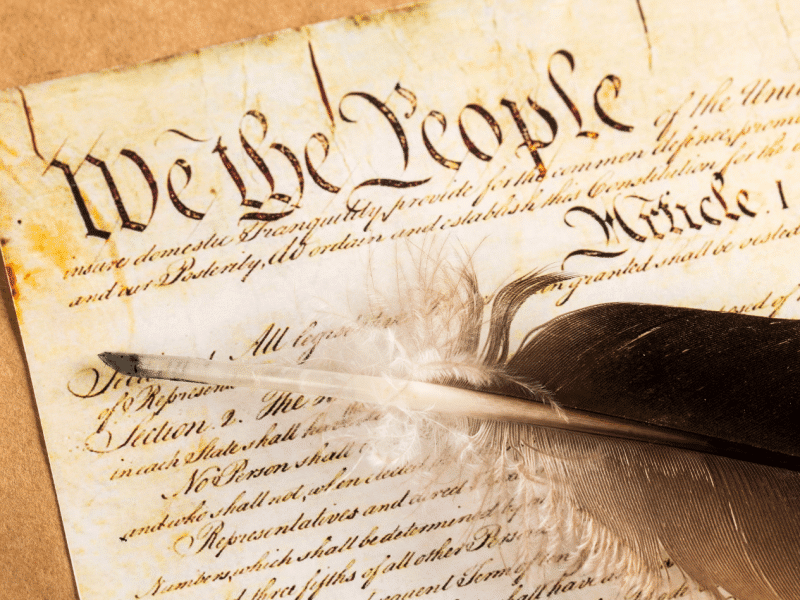 We the People of the Uni
insure domestic Tranquility, provide for the common defence, promo
and our Posterity, do ordain and establish this Constitution for the
Article. I
granted shall be vested
Section. 1. All legis
of Represen
Section. 2. The
in each State shall ha
No Person shall
and who shall not, when elected
Representatives and direct
Numbers, which shall be determined by
three fifths of all other Person
Term of ten
shall have